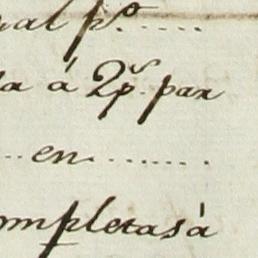 ual p.º......
la á 2p.s par
...en........
ompletas á